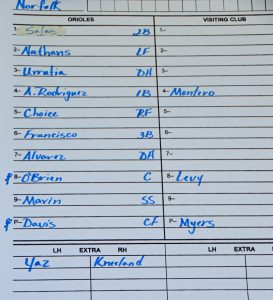 Norfolk
ORIOLES VISITING CLUB
1- Salas 2B 1-
2- Nathans LF 2-
3- Urrutia DH 3-
4- A. Rodriguez 1B 4- Montero
5- Choice RF 5-
6- Francisco 3B 6-
7- Alvarez DH 7-
8- O'Brien C 8- Levy
9- Marin SS 9-
P- Davis CF P- Myers
LH EXTRA RH LH EXTRA
Yaz Kneeland